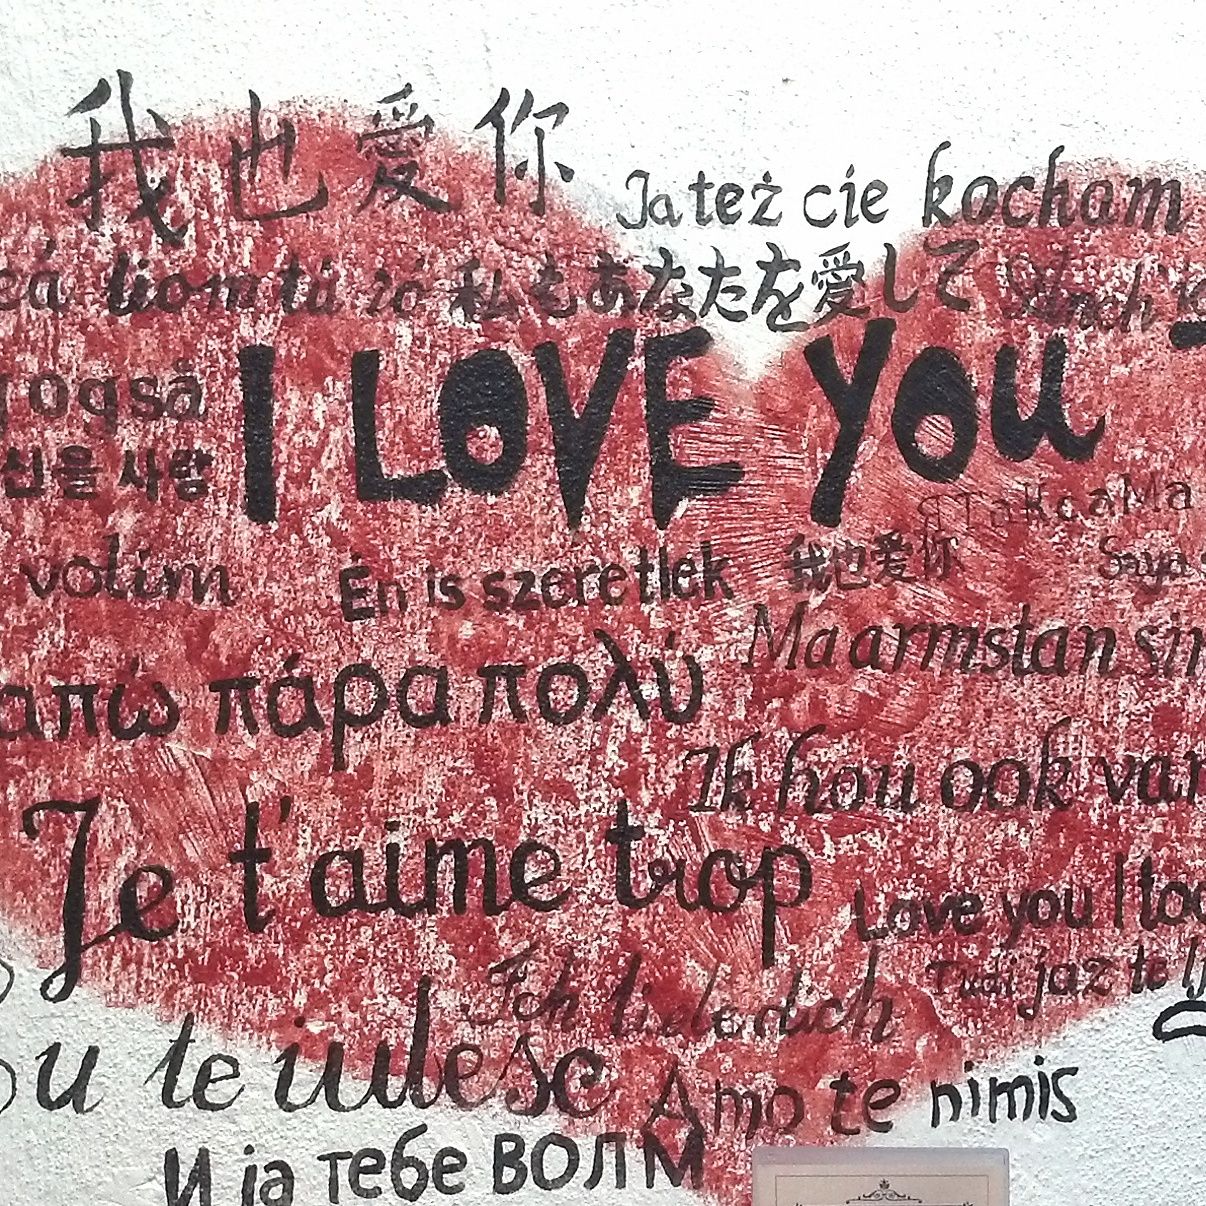 我也爱你
Ja też cie kocham
liom tú 私もあなたを愛して
I LOVE YOU
också
신을 사랑
volim
Én is szeretlek
我也爱你
Saya
Ma armstan sin
απώ πάρα πολύ
Ik hou ook van
Je t'aime trop
Love you too
Tudi jaz te
Ich liebe dich
te iubesc
Amo te nimis
И ја тебе ВОЛМ